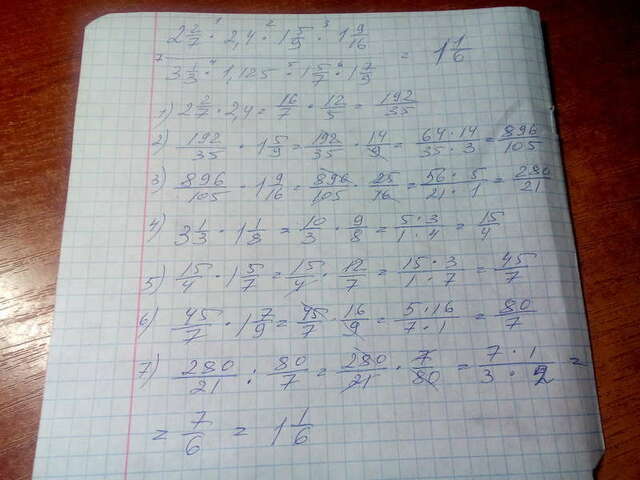 2 2/7 · 2,4 · 1 5/9 · 1 9/16
3 1/3 · 1,125 · 1 5/7 · 1 7/9 = 1 1/6
1) 2 2/7 · 2,4 = 16/7 · 12/5 = 192/35
2) 192/35 · 1 5/9 = 192/35 · 14/9 = 64·14/35·3 = 896/105
3) 896/105 · 1 9/16 = 896/105 · 25/16 = 56·5/21·1 = 280/21
4) 3 1/3 · 1 1/8 = 10/3 · 9/8 = 5·3/1·4 = 15/4
5) 15/4 · 1 5/7 = 15/4 · 12/7 = 15·3/1·7 = 45/7
6) 45/7 · 1 7/9 = 45/7 · 16/9 = 5·16/7·1 = 80/7
7) 280/21 : 80/7 = 280/21 · 7/80 = 7·1/3·2 =
= 7/6 = 1 1/6